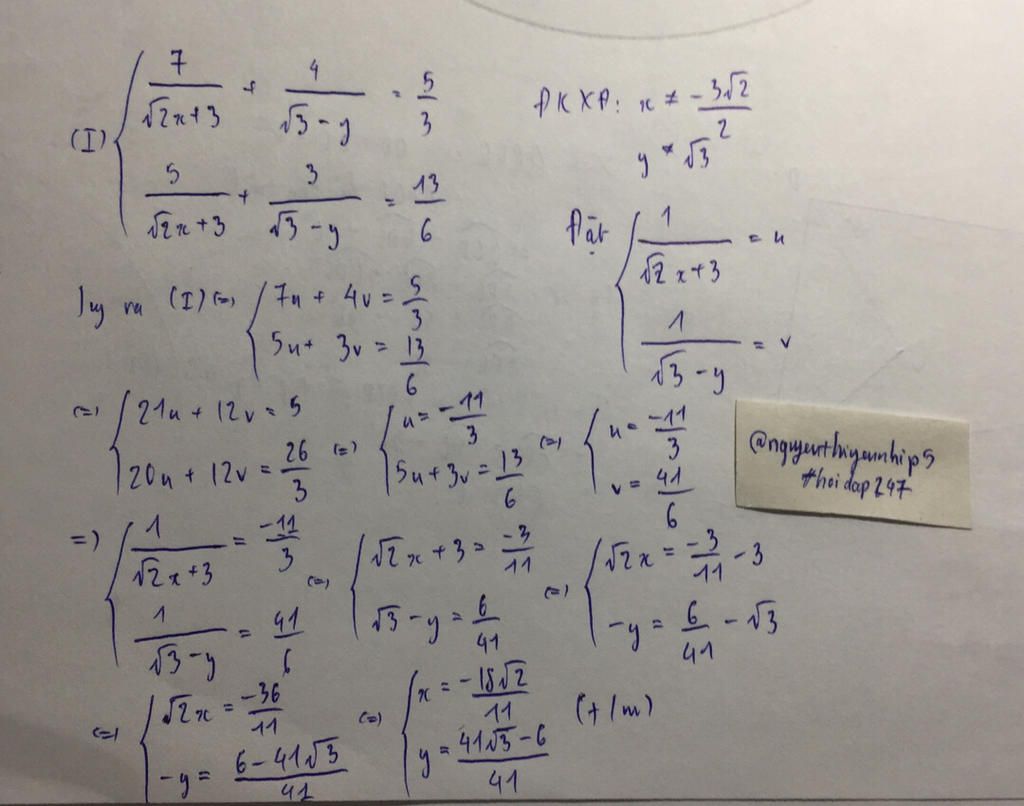 (I) { 7/(√2x+3) + 4/(√3-y) = 5/3
5/(√2x+3) + 3/(√3-y) = 13/6
ĐKXĐ: x ≠ -3√2/2
y ≠ √3
Đặt { 1/(√2x+3) = u
1/(√3-y) = v
Suy ra (I) (=) { 7u + 4v = 5/3
5u + 3v = 13/6
(=) { 21u + 12v = 5
20u + 12v = 26/3
(=) { u = -11/3
5u + 3v = 13/6
(=) { u = -11/3
v = 41/6
@nguyenthiyennhip5
#hoidap247
=) { 1/(√2x+3) = -11/3
1/(√3-y) = 41/6
(=) { √2x + 3 = -3/11
√3 - y = 6/41
(=) { √2x = -3/11 - 3
-y = 6/41 - √3
(=) { √2x = -36/11
-y = (6-41√3)/41
(=) { x = -18√2/11
y = (41√3-6)/41
(t/m)